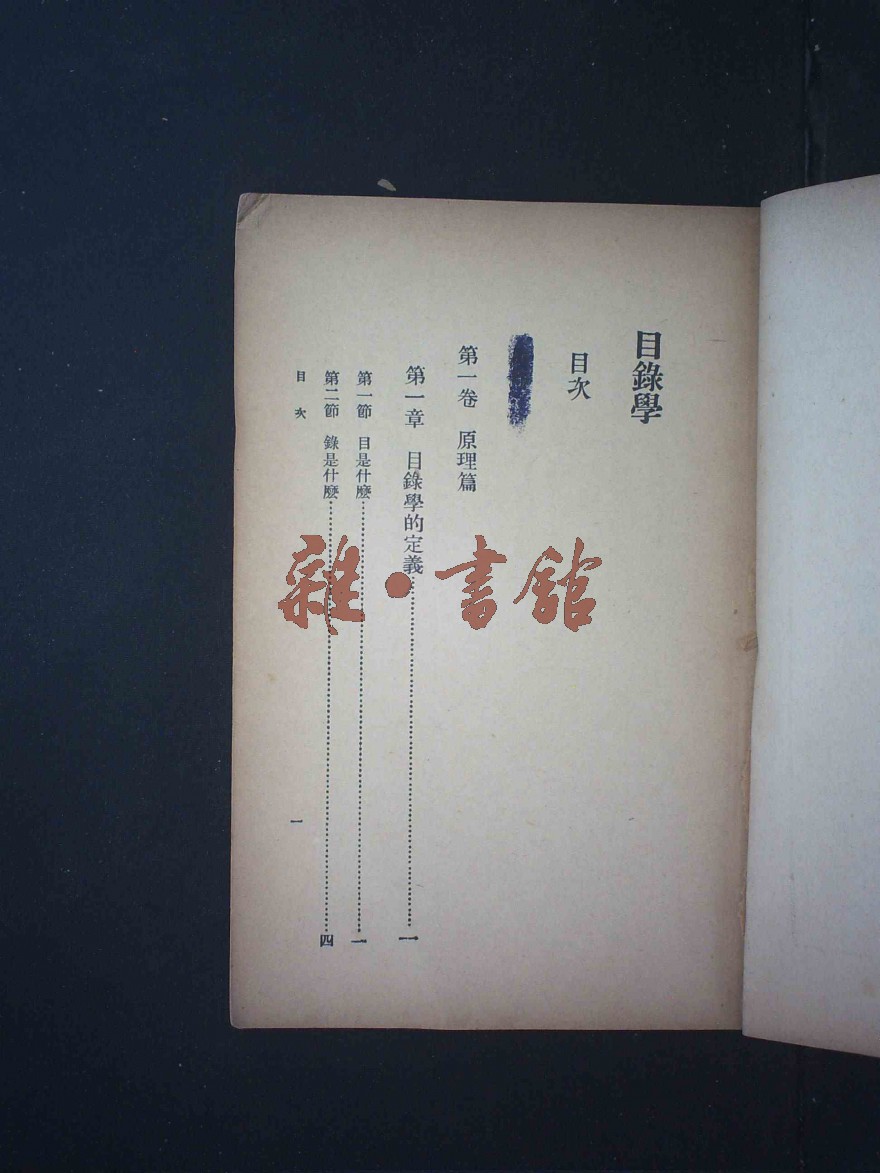 目錄學
目次
第一卷 原理篇
第一章 目錄學的定義……一
第一節 目是什麼……一
第二節 錄是什麼……四
目次
一
雜·書館